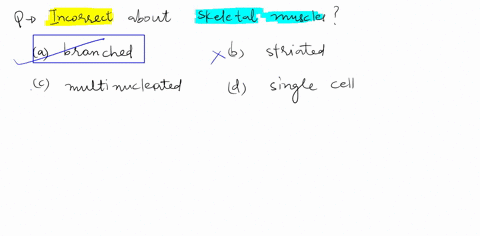 Q→ Incorrect about skeletal muscle?
(a) branched (b) striated
(c) multinucleated (d) single cell